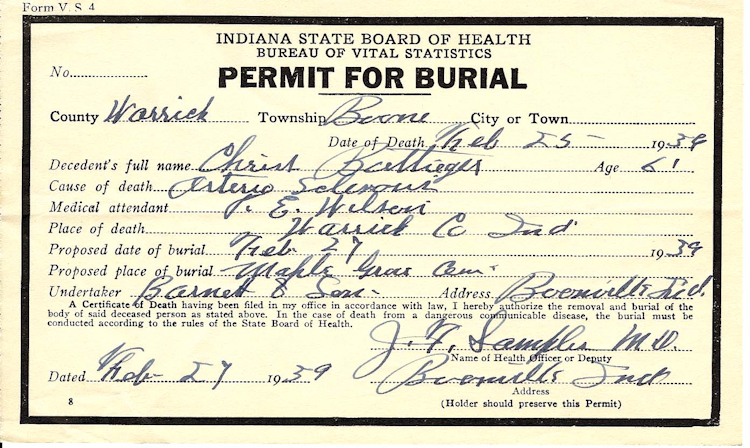 Form V. S. 4
INDIANA STATE BOARD OF HEALTH
BUREAU OF VITAL STATISTICS
No.
PERMIT FOR BURIAL
County Warrick Township Boone City or Town
Date of Death Feb 25 - 1939
Decedent's full name Christ Age 61
Cause of death Arterio Sclerosis
Medical attendant P. E. Wilson
Place of death Warrick Co Ind
Proposed date of burial Feb 27 1939
Proposed place of burial Maple Grove Cem.
Undertaker Barnett & Son - Address Boonville Ind.
A Certificate of Death having been filed in my office in accordance with law, I hereby authorize the removal and burial of the
body of said deceased person as stated above. In the case of death from a dangerous communicable disease, the burial must be
conducted according to the rules of the State Board of Health.
J. F. Samples M.D.
Name of Health Officer or Deputy
Dated Feb 27 1939 Boonville Ind
Address
8 (Holder should preserve this Permit)